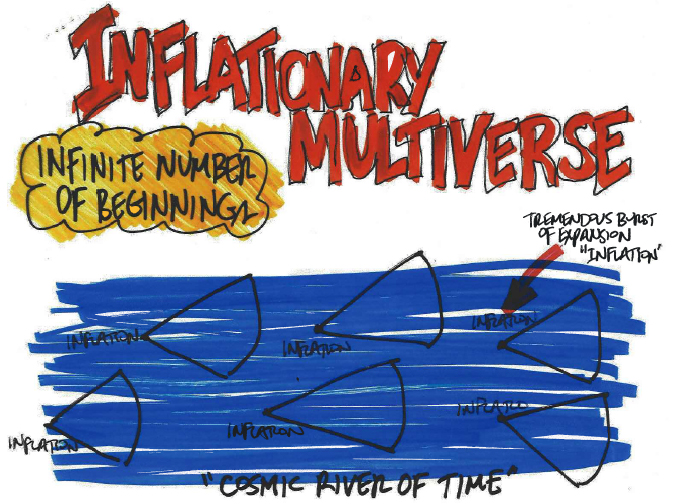 INFLATIONARY
MULTIVERSE
INFINITE NUMBER
OF BEGINNINGS
TREMENDOUS BURST
OF EXPANSION
"INFLATION"
INFLATION
INFLATION
INFLATION
INFLATION
INFLATION
INFLATIO
"COSMIC RIVER OF TIME"